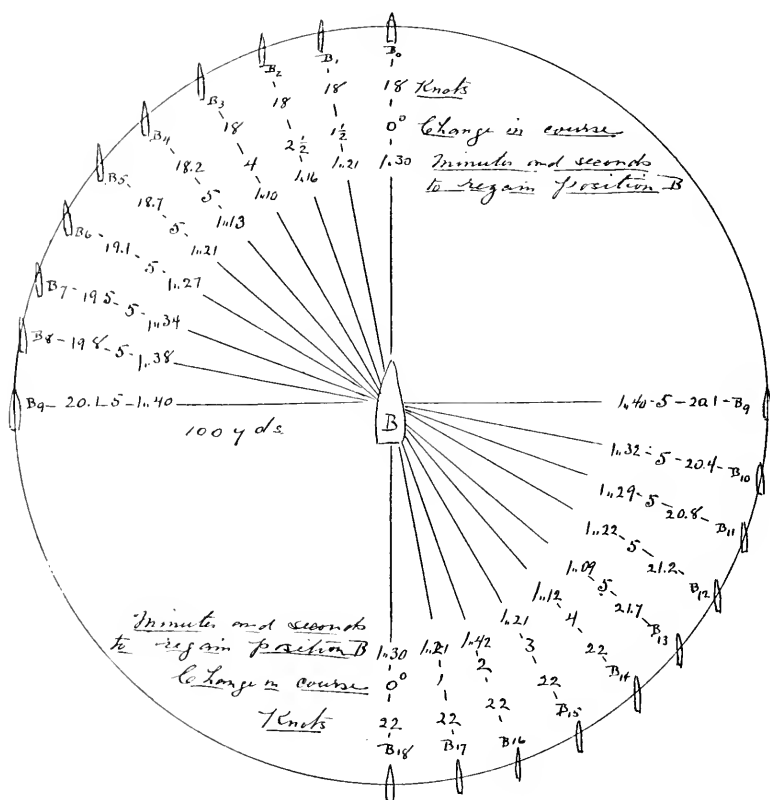 B0
18 Knots
0° Change in course
1"30 Minutes and seconds
to regain position B
B1 18 1½ 1"21
B2 18 2½ 1"16
B3 18 4 1"10
B4 18.2 5 1"13
B5 18.7 5 1"21
B6 - 19.1 - 5 - 1"27
B7 - 19 5 - 5 - 1"34
B8 - 19 8 - 5 - 1"38
B9 - 20.1 - 5 - 1"40
100 yds
B
1"40 - 5 - 20.1 - B9
1"32 - 5 - 20.4 - B10
1"29 - 5 - 20.8 - B11
1"22 - 5 - 21.2 - B12
1"09 5 21.7 B13
1"12 4 22 B14
1"21 3 22 B15
1"42 2 22 B16
1"21 1 22 B17
Minutes and seconds
to regain position B 1"30
Change in course 0°
Knots 22
B18